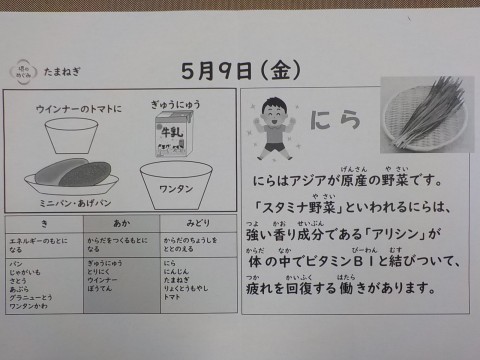 堺のめぐみ
たまねぎ
5月9日(金)
ウインナーのトマトに
ぎゅうにゅう
牛乳
ミニパン・あげパン
ワンタン
き
あか
みどり
エネルギーのもとに
なる
からだをつくるもとに
なる
からだのちょうしを
ととのえる
パン
じゃがいも
さとう
あぶら
グラニューとう
ワンタンかわ
ぎゅうにゅう
とりにく
ウインナー
ぼうてん
にら
にんじん
たまねぎ
りょくとうもやし
トマト
にら
げんさん やさい
にらはアジアが原産の野菜です。
やさい
「スタミナ野菜」といわれるにらは、
つよ かお せいぶん
強い香り成分である「アリシン」が
からだ なか びーわん むす
体の中でビタミンB1と結びついて、
つか かいふく はたら
疲れを回復する働きがあります。